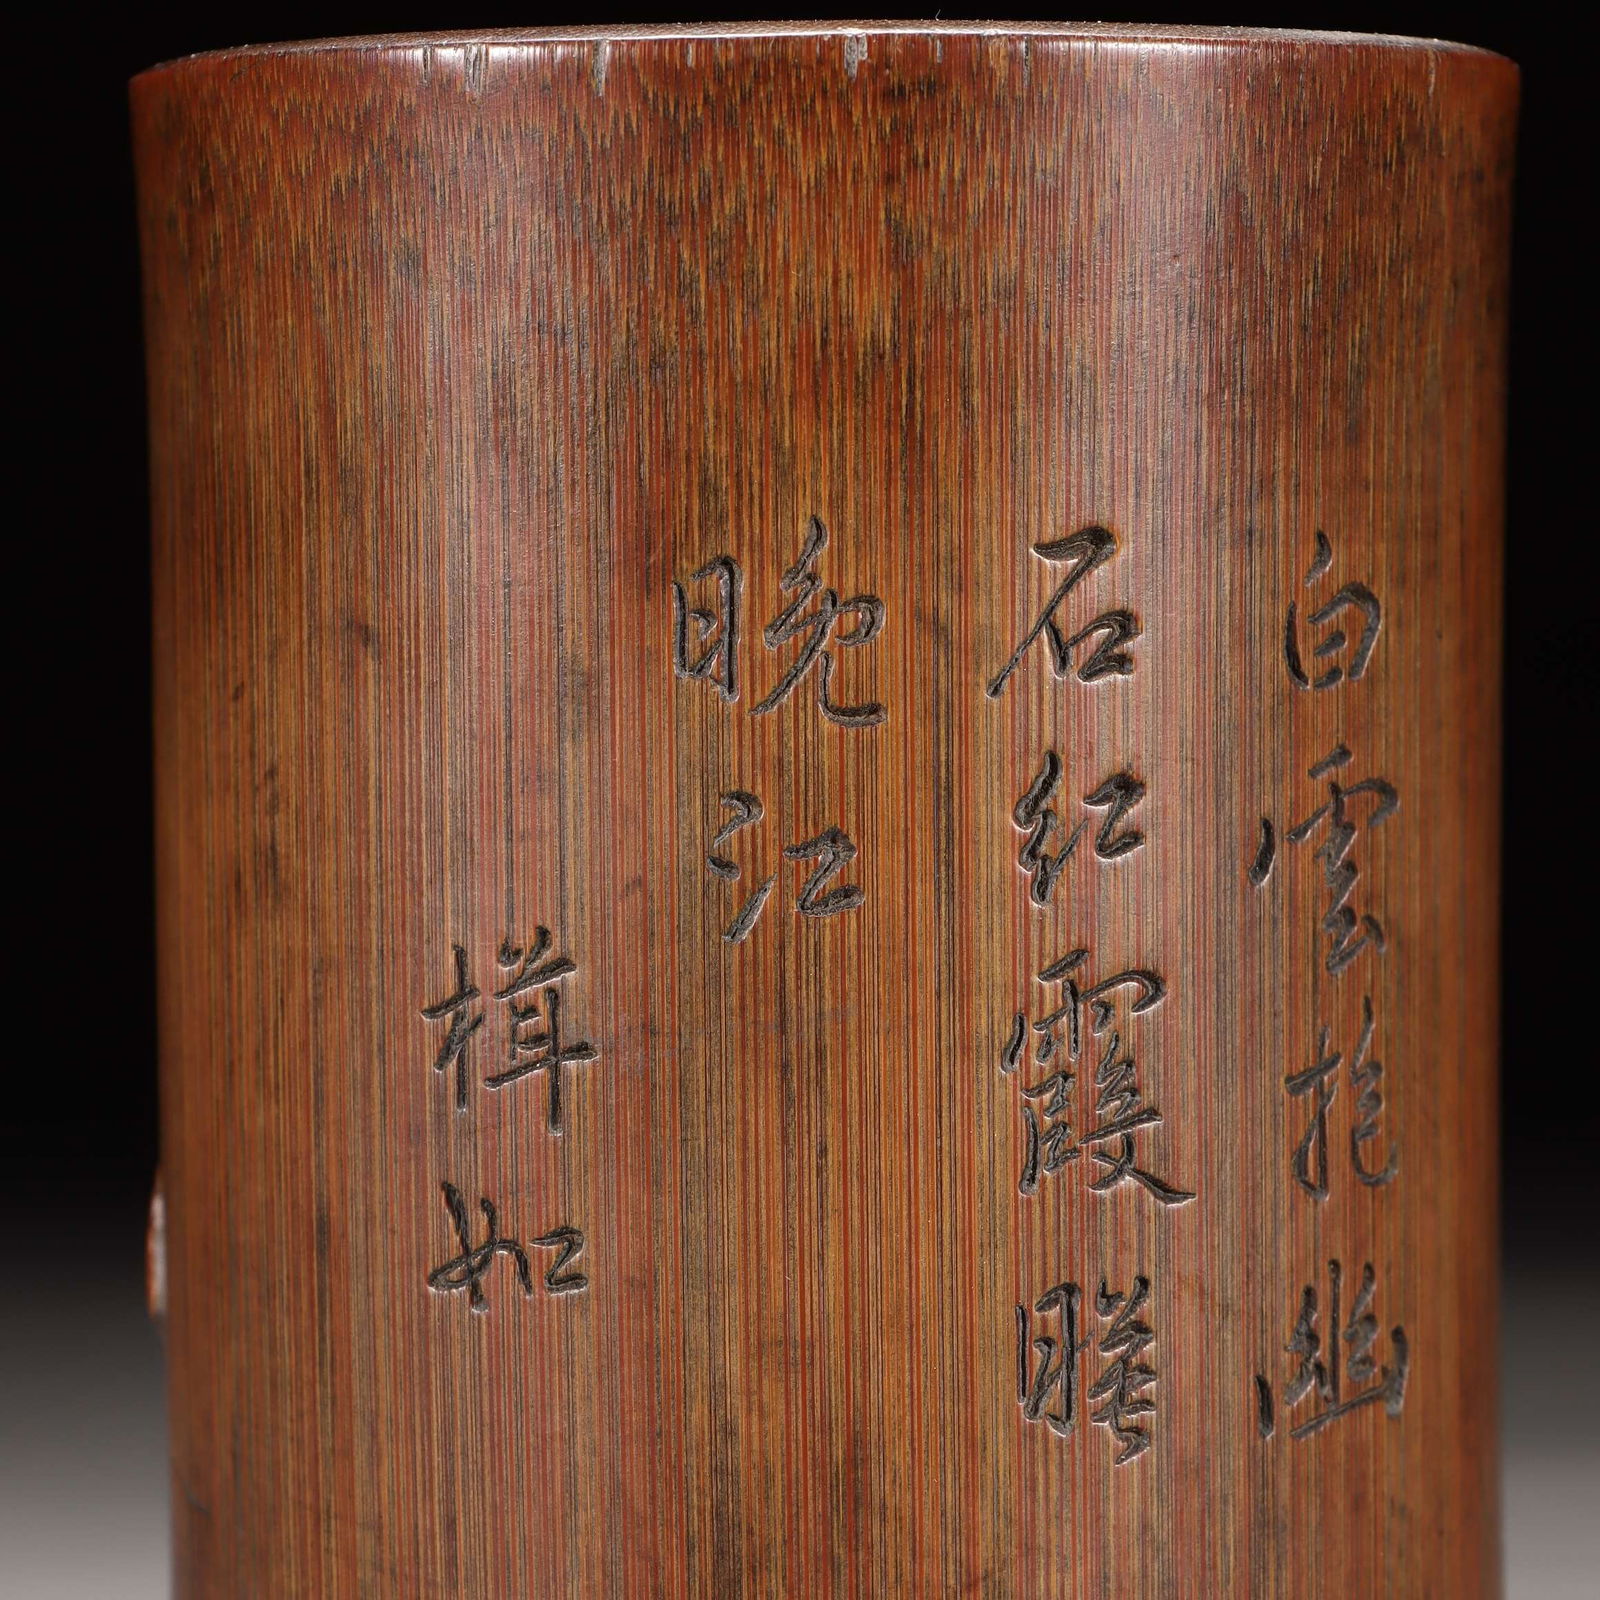 白雲抱幽
石紅霞
晚江
楫如